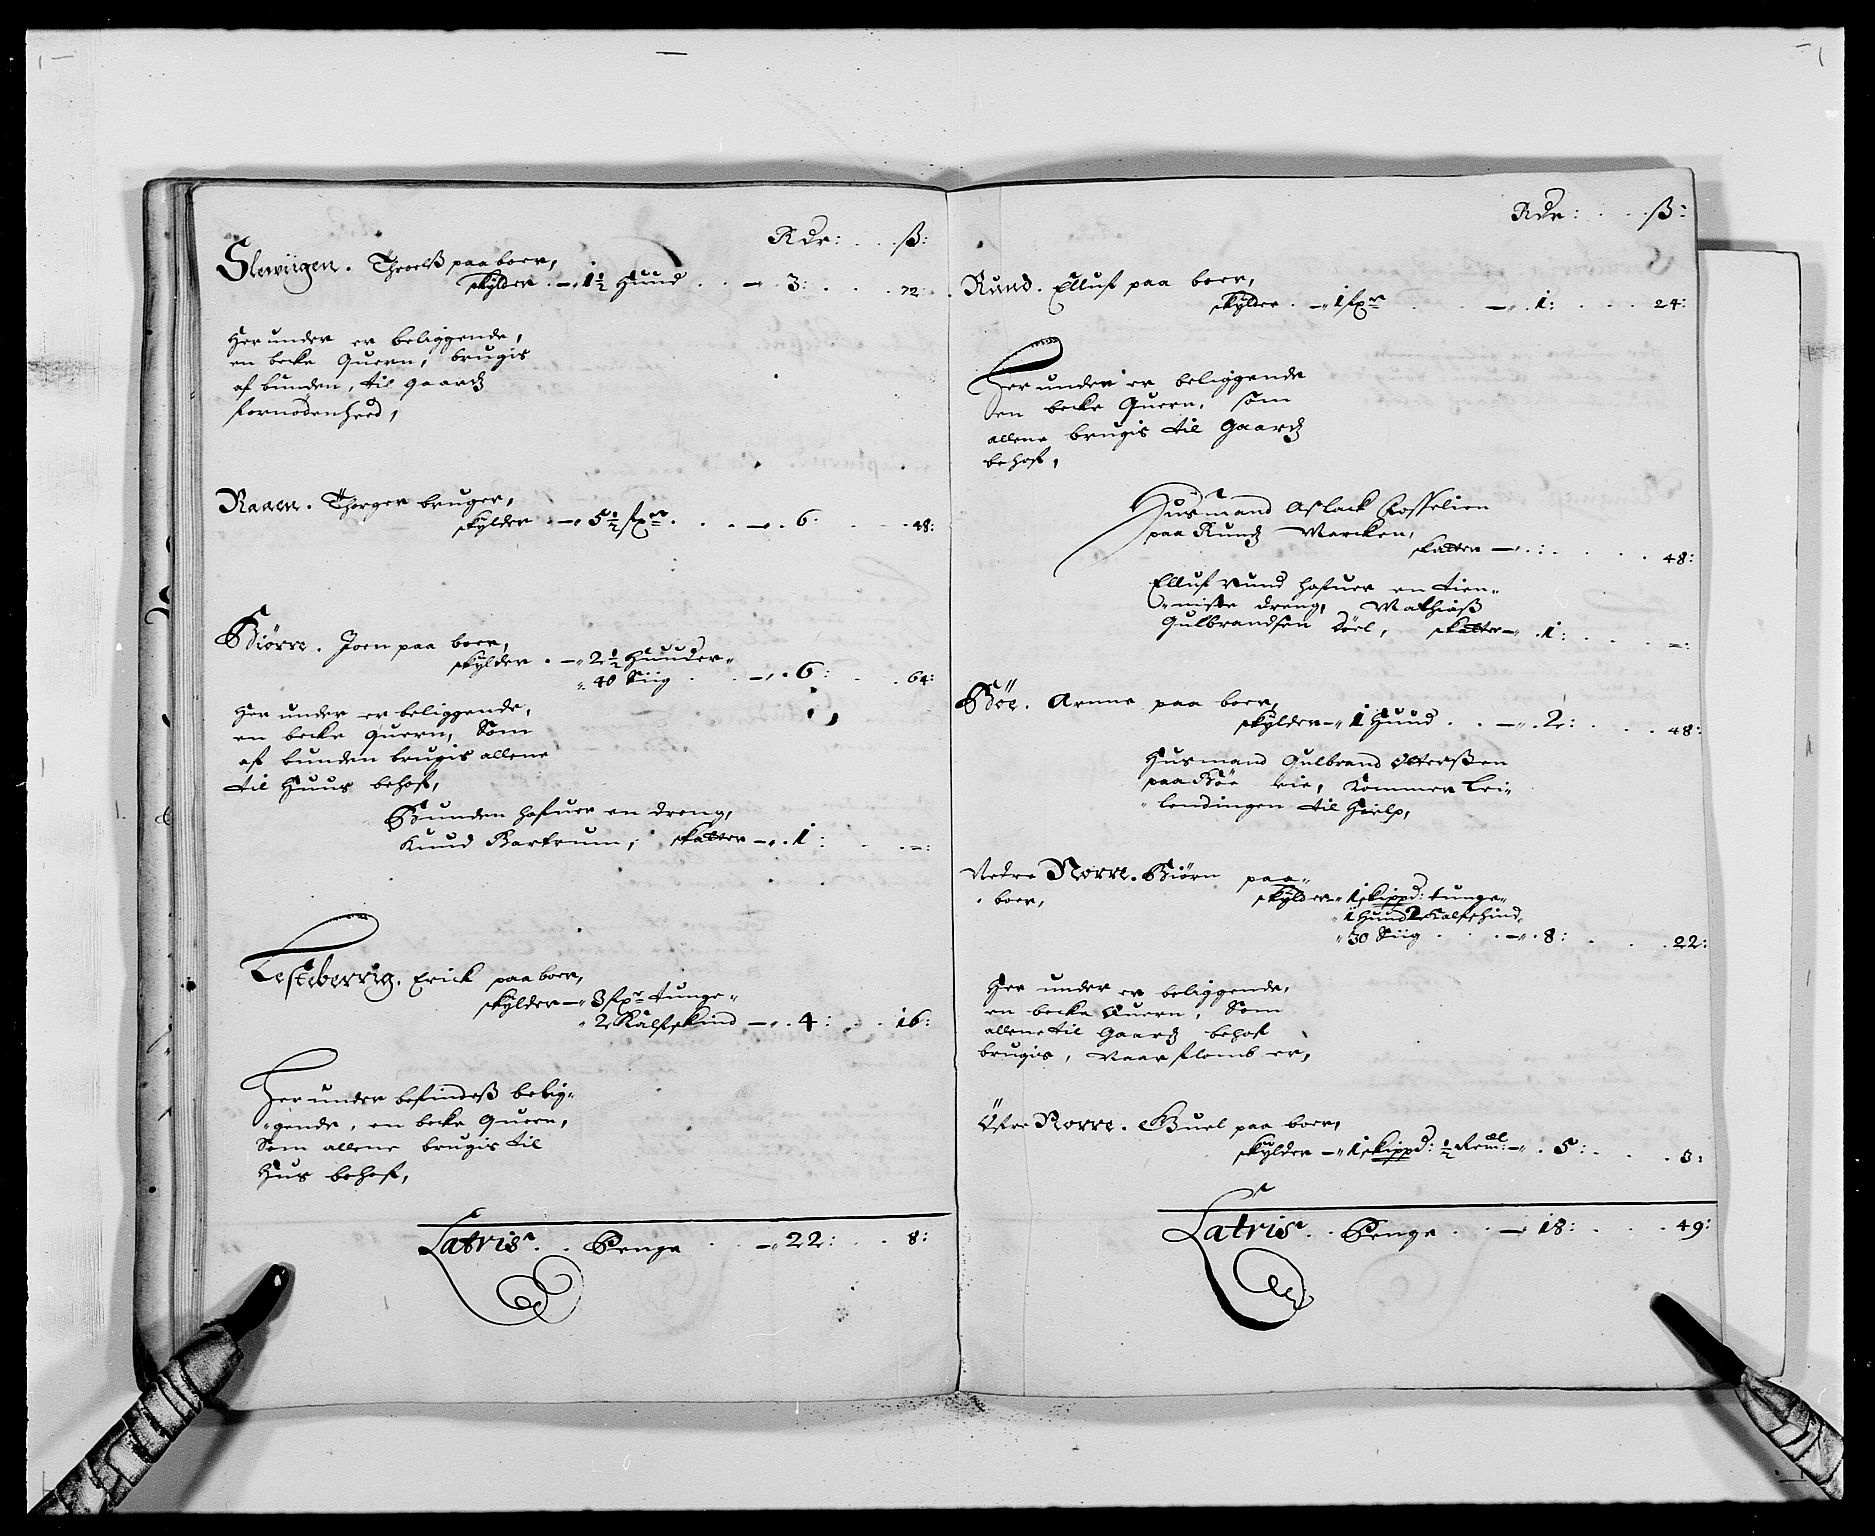 Rdr: . . . ß:
Slewiigen. Throelß paa boer,
skylder . — 1½ Huud . . — 3: . . . 72:
Her under er beliggende,
en becke Quern, brugis
af bunden, til gaardz
fornødenheed,
Raaen. Thorger bruger,
skylder . — 5½ fxr . . . — 6: . . . 48:
Biörre. Joen paa boer,
skylder . — 2½ Huuder
40 Siig . . — 6: . . 64:
Her under er beliggende,
en becke Quern, Som
af bunden brugis allene
til Huus behof,
Bunden hafuer en dreng,
Knud Bertrum, skatter — 1: . . —:
Testeberrig. Erick paa boer,
skylder — 3 fxr tunge
2 Kalfskind — 4: . . 16:
Her under befindeß belig-
gende, en becke Quern,
Som allene brugis til
Hus behof,
Latris . . Penge . . — 22: . . 8:
Rdr: . . . ß:
Rund. Elluf paa boer,
skylder . — 1 fxr . . — 1: . . . 24:
Her under er beliggende
en becke Quern, som
allene brugis til Gaardz
behof,
Husmand Aslack Rosselien
paa Rundz Marcken,
skatter — : . . . 48:
Elluf Rund hafuer en tien-
niste dreng, Mathiaß
Gulbrandsen Roel, skatter — 1: . . . —:
Böe. Arnne paa boer,
skylder — 1 Huud . . — 2: . . . 48:
Husmand Gulbrand Otterßen
paa Böe eie, kommer lei-
lendingen til Hielp,
Nedre Norre. Biörn paa
boer, skylder — 1 skippd: tunge
1 Huud 2 Kalfskind
30 Siig . . . — 8: . . . 22:
Her under er beliggende,
en becke Quern, Som
allene til Gaardz behof
brugis, Naar flomb er,
Öfre Norre. Guel paa boer,
skylder — 1 skippd: ½ Reml: — 5: . . . 3:
Latris . . Penge . . — 18: . . . 49: